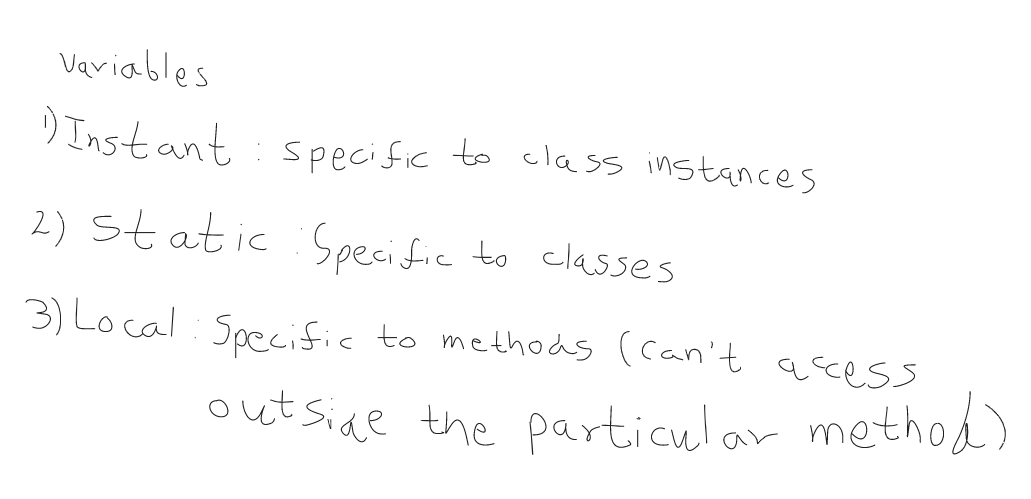 Variables
1) Instant : specific to class instances
2) Static : Specific to classes
3) Local : Specific to methods (can't access
outside the particular method)